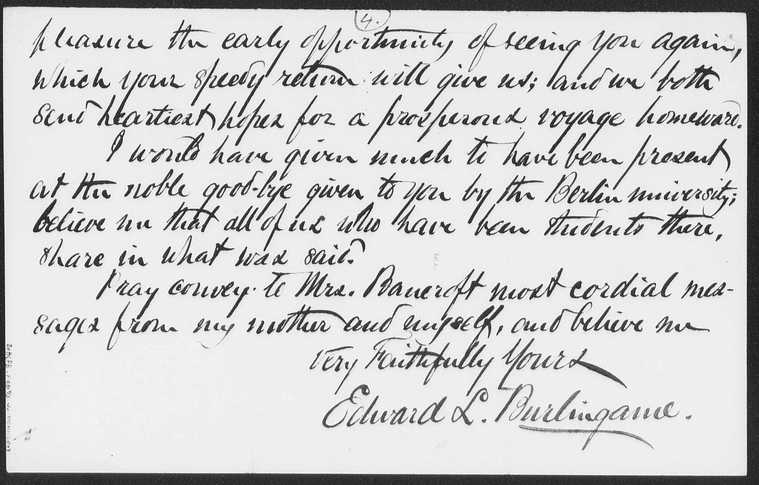 4.
pleasure the early opportunity of seeing you again,
which your speedy return will give us; and we both
send heartiest hopes for a prosperous voyage homeward.
I would have given much to have been present
at the noble good-bye given to you by the Berlin university;
believe me that all of us who have been students there,
share in what was said.
Pray convey to Mrs. Bancroft most cordial mes-
sages from my mother and myself, and believe me
Very Faithfully Yours
Edward L. Burlingame.